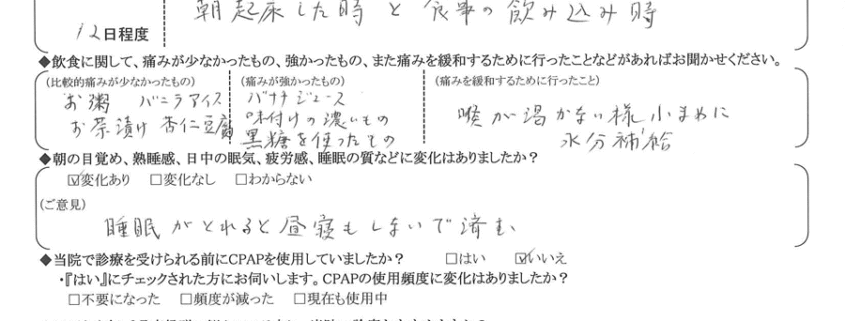 12日程度
朝起床した時と食事の飲み込み時
◆飲食に関して、痛みが少なかったもの、強かったもの、また痛みを緩和するために行ったことなどがあればお聞かせください。
(比較的痛みが少なかったもの)
お粥 バニラアイス
お茶漬け 杏仁豆腐
(痛みが強かったもの)
バナナジュース
味付けの濃いもの
黒糖を使ったもの
(痛みを緩和するために行ったこと)
喉が渇かない様小まめに
水分補給
◆朝の目覚め、熟睡感、日中の眠気、疲労感、睡眠の質などに変化はありましたか?
☑変化あり □変化なし □わからない
(ご意見)
睡眠がとれると昼寝もしないで済む、
◆当院で診療を受けられる前にCPAPを使用していましたか? □はい ☑いいえ
・『はい』にチェックされた方にお伺いします。CPAPの使用頻度に変化はありましたか?
□不要になった □頻度が減った □現在も使用中